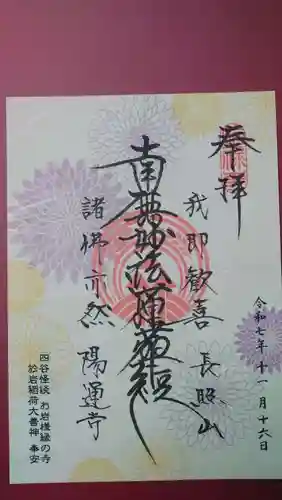 奉拝
令和七年十一月十六日
我即歓喜 長照山
南無妙法蓮華経
諸佛亦然 陽運寺
四谷怪談 お岩様縁の寺
於岩稲荷大善神 奉安